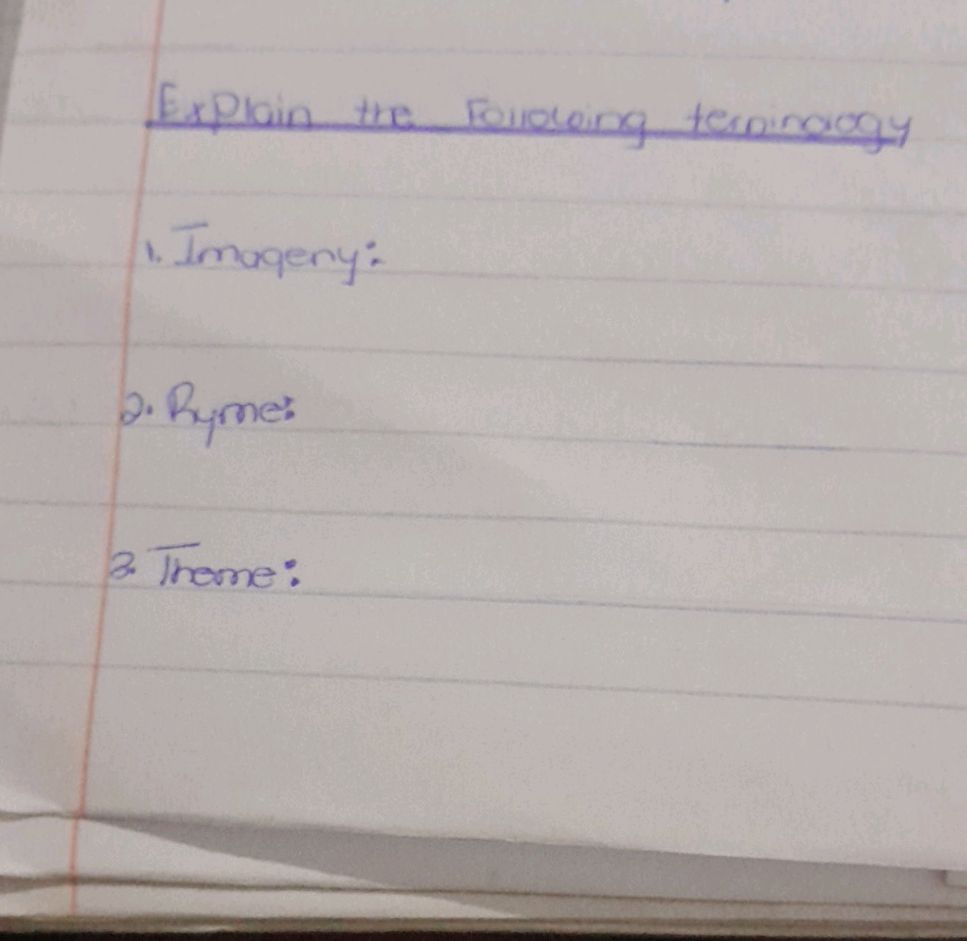 Explain the Following terminology
1. Imagery:
2. Ryme:
3. Theme: